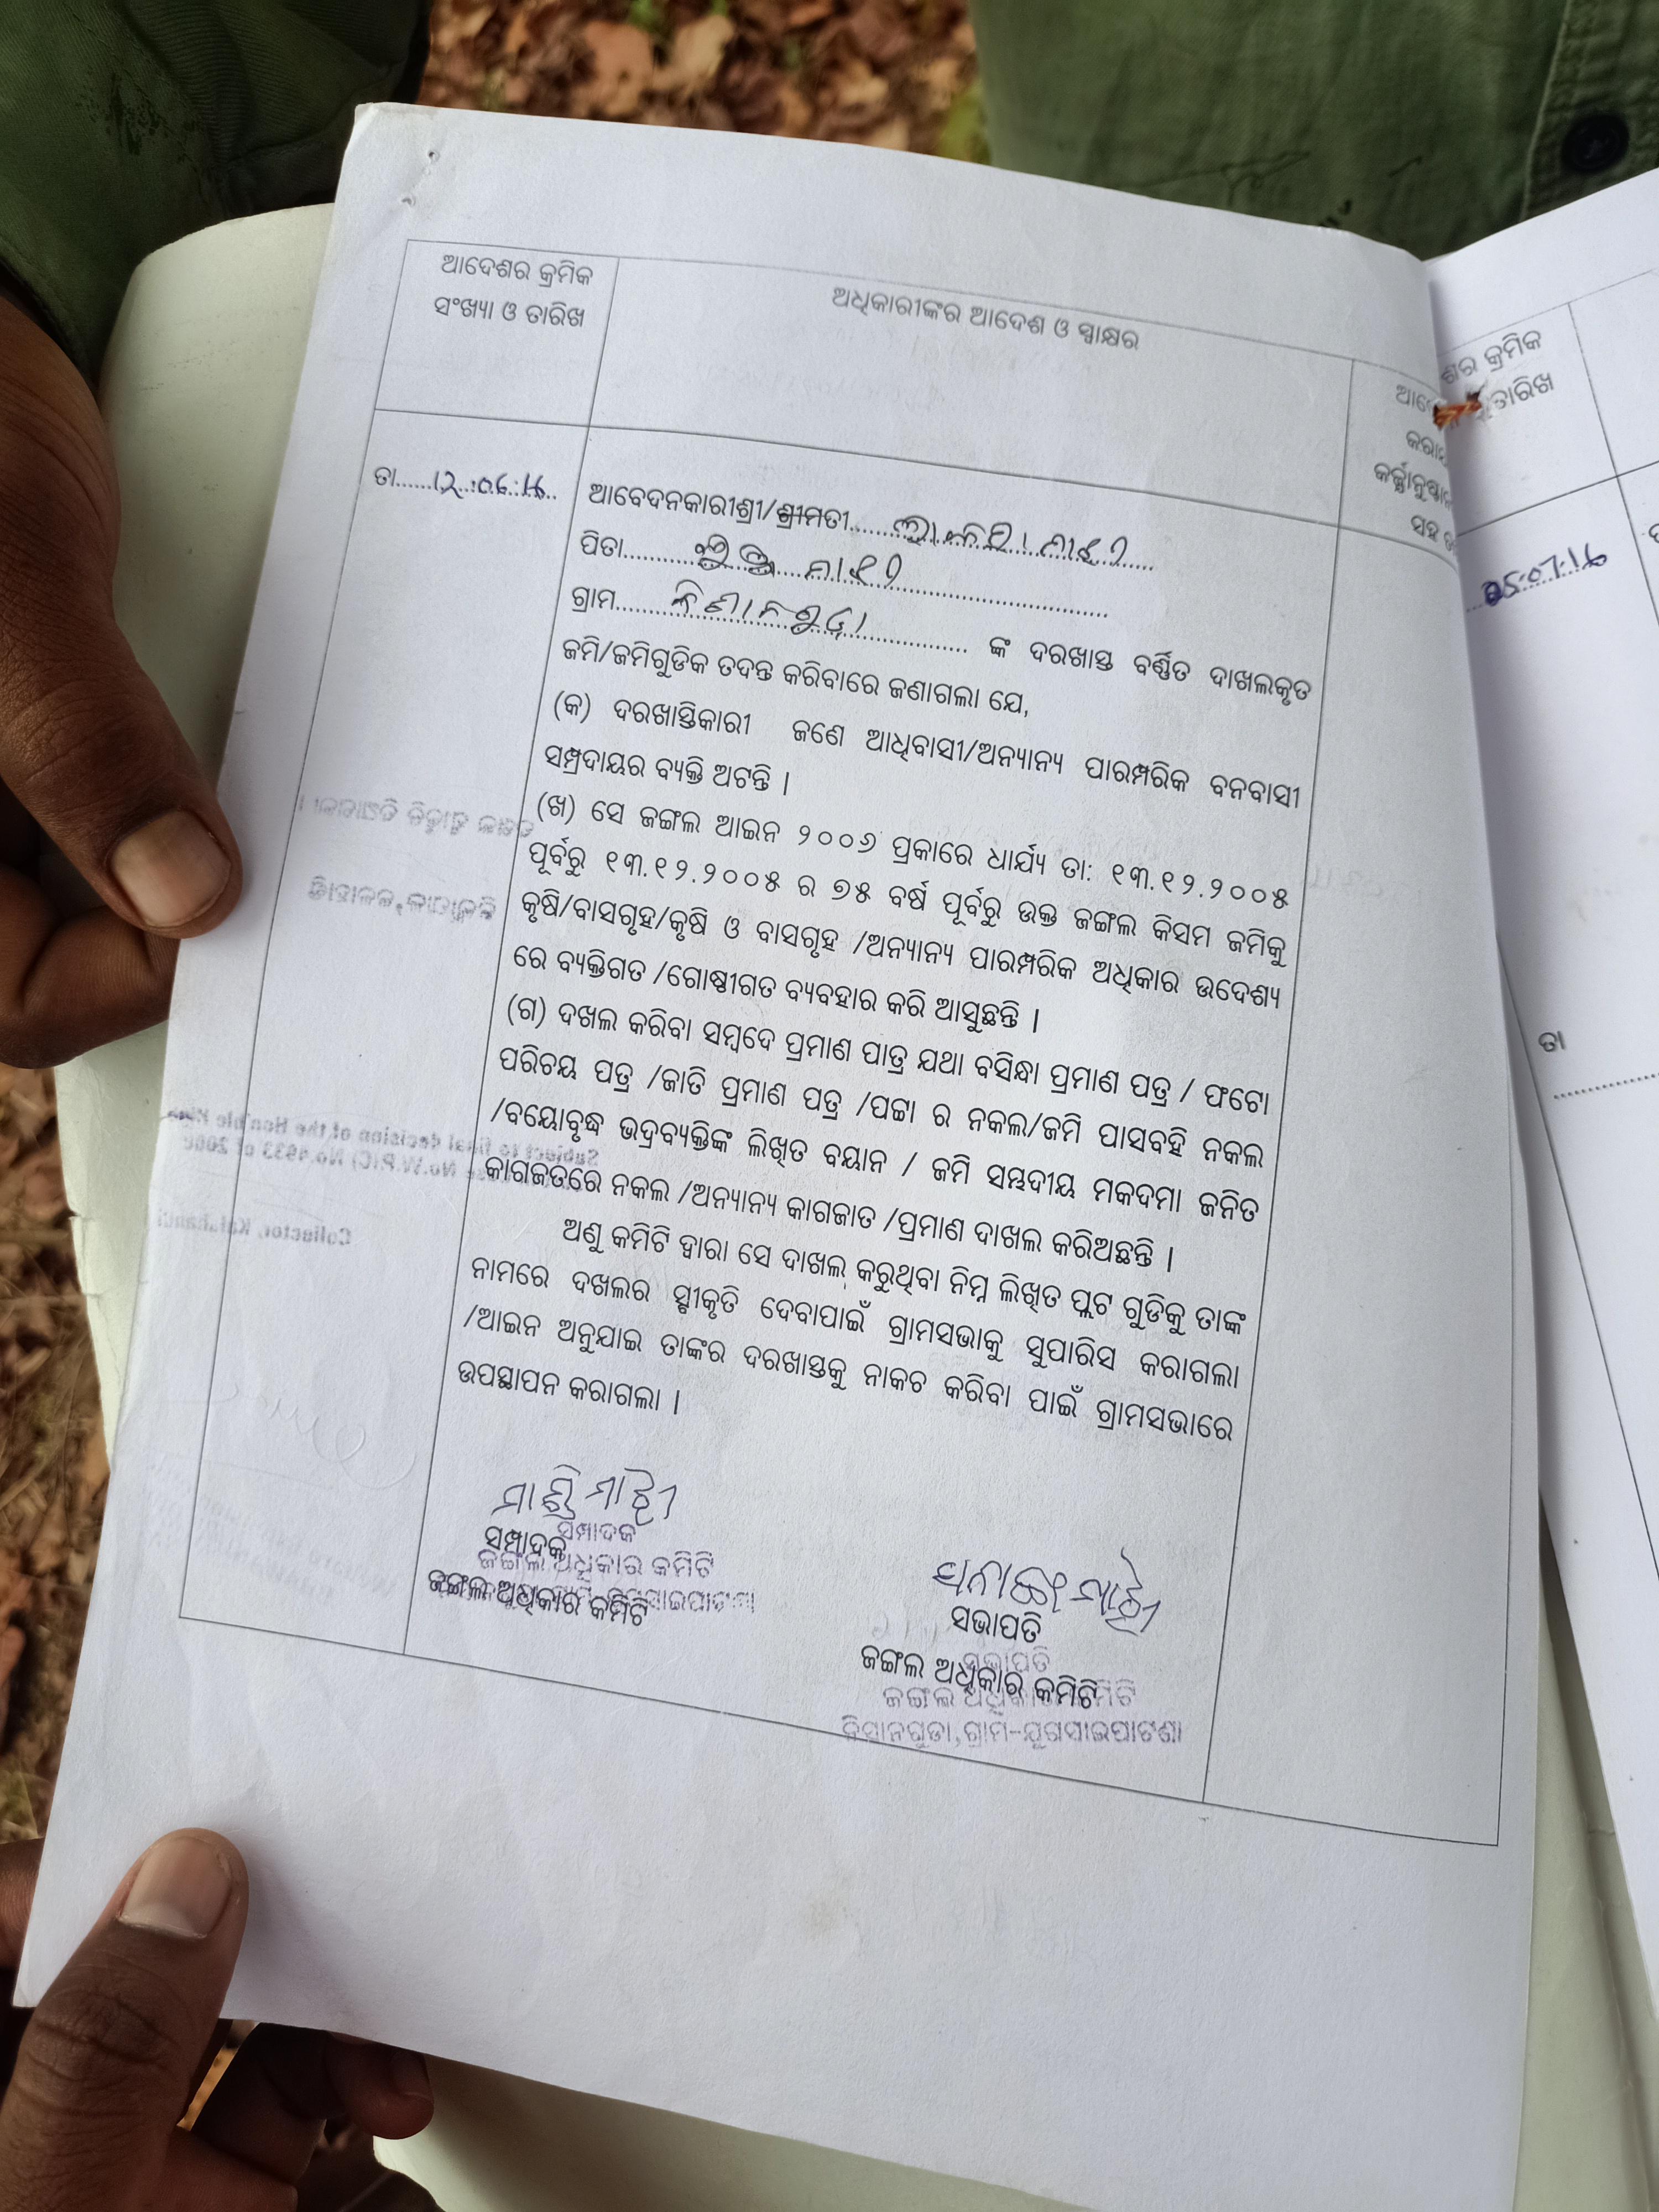 ଆଦେଶର କ୍ରମିକ
ସଂଖ୍ୟା ଓ ତାରିଖ
ଅଧିକାରୀଙ୍କର ଆଦେଶ ଓ ସ୍ୱାକ୍ଷର
ତା......୧୨.୦୪.୧୬..
ଆବେଦନକାରୀଶ୍ରୀ/ଶ୍ରୀମତୀ.....
ପିତା..... ମାଝୀ
ଗ୍ରାମ..... ଙ୍କ ଦରଖାସ୍ତ ବର୍ଣ୍ଣିତ ଦାଖଲକୃତ
ଜମି/ଜମିଗୁଡିକ ତଦନ୍ତ କରିବାରେ ଜଣାଗଲା ଯେ,
(କ) ଦରଖାସ୍ତିକାରୀ ଜଣେ ଆଧିବାସୀ/ଅନ୍ୟାନ୍ୟ ପାରମ୍ପରିକ ବନବାସୀ
ସମ୍ପ୍ରଦାୟର ବ୍ୟକ୍ତି ଅଟନ୍ତି ।
(ଖ) ସେ ଜଙ୍ଗଲ ଆଇନ ୨୦୦୬ ପ୍ରକାରେ ଧାର୍ଯ୍ୟ ତା: ୧୩.୧୨.୨୦୦୫
ପୂର୍ବରୁ ୧୩.୧୨.୨୦୦୫ ର ୭୫ ବର୍ଷ ପୂର୍ବରୁ ଉକ୍ତ ଜଙ୍ଗଲ କିସମ ଜମିକୁ
କୃଷି/ବାସଗୃହ/କୃଷି ଓ ବାସଗୃହ /ଅନ୍ୟାନ୍ୟ ପାରମ୍ପରିକ ଅଧିକାର ଉଦେଶ୍ୟ
ରେ ବ୍ୟକ୍ତିଗତ /ଗୋଷ୍ଠୀଗତ ବ୍ୟବହାର କରି ଆସୁଛନ୍ତି ।
(ଗ) ଦଖଲ କରିବା ସମ୍ବଦେ ପ୍ରମାଣ ପାତ୍ର ଯଥା ବସିନ୍ଧା ପ୍ରମାଣ ପତ୍ର / ଫଟୋ
ପରିଚୟ ପତ୍ର /ଜାତି ପ୍ରମାଣ ପତ୍ର /ପଟ୍ଟା ର ନକଲ/ଜମି ପାସବହି ନକଲ
/ବୟୋବୃଦ୍ଧ ଭଦ୍ରବ୍ୟକ୍ତିଙ୍କ ଲିଖିତ ବୟାନ / ଜମି ସମ୍ଭଦୀୟ ମକଦମା ଜନିତ
କାଗଜତରେ ନକଲ /ଅନ୍ୟାନ୍ୟ କାଗଜାତ /ପ୍ରମାଣ ଦାଖଲ କରିଅଛନ୍ତି ।
ଅଣୁ କମିଟି ଦ୍ୱାରା ସେ ଦାଖଲ କରୁଥିବା ନିମ୍ନ ଲିଖିତ ପ୍ଲଟ ଗୁଡିକୁ ତାଙ୍କ
ନାମରେ ଦଖଲର ସ୍ବୀକୃତି ଦେବାପାଇଁ ଗ୍ରାମସଭାକୁ ସୁପାରିସ କରାଗଲା
/ଆଇନ ଅନୁଯାଇ ତାଙ୍କର ଦରଖାସ୍ତକୁ ନାକଚ କରିବା ପାଇଁ ଗ୍ରାମସଭାରେ
ଉପସ୍ଥାପନ କରାଗଲା ।
ସମ୍ପାଦକ
ସମ୍ପାଦକ
ଜଙ୍ଗଲ ଅଧିକାର କମିଟି
ଜଙ୍ଗଲ ଅଧିକାର କମିଟି
ସଭାପତି
ସଭାପତି
ଜଙ୍ଗଲ ଅଧିକାର କମିଟି
ଜଙ୍ଗଲ ଅଧିକାର କମିଟି
କିସାନଗୁଡା,ଗ୍ରାମ-ଯୁଗସାଇପାଟଣା
ଶର କ୍ରମିକ
ତାରିଖ
ତା